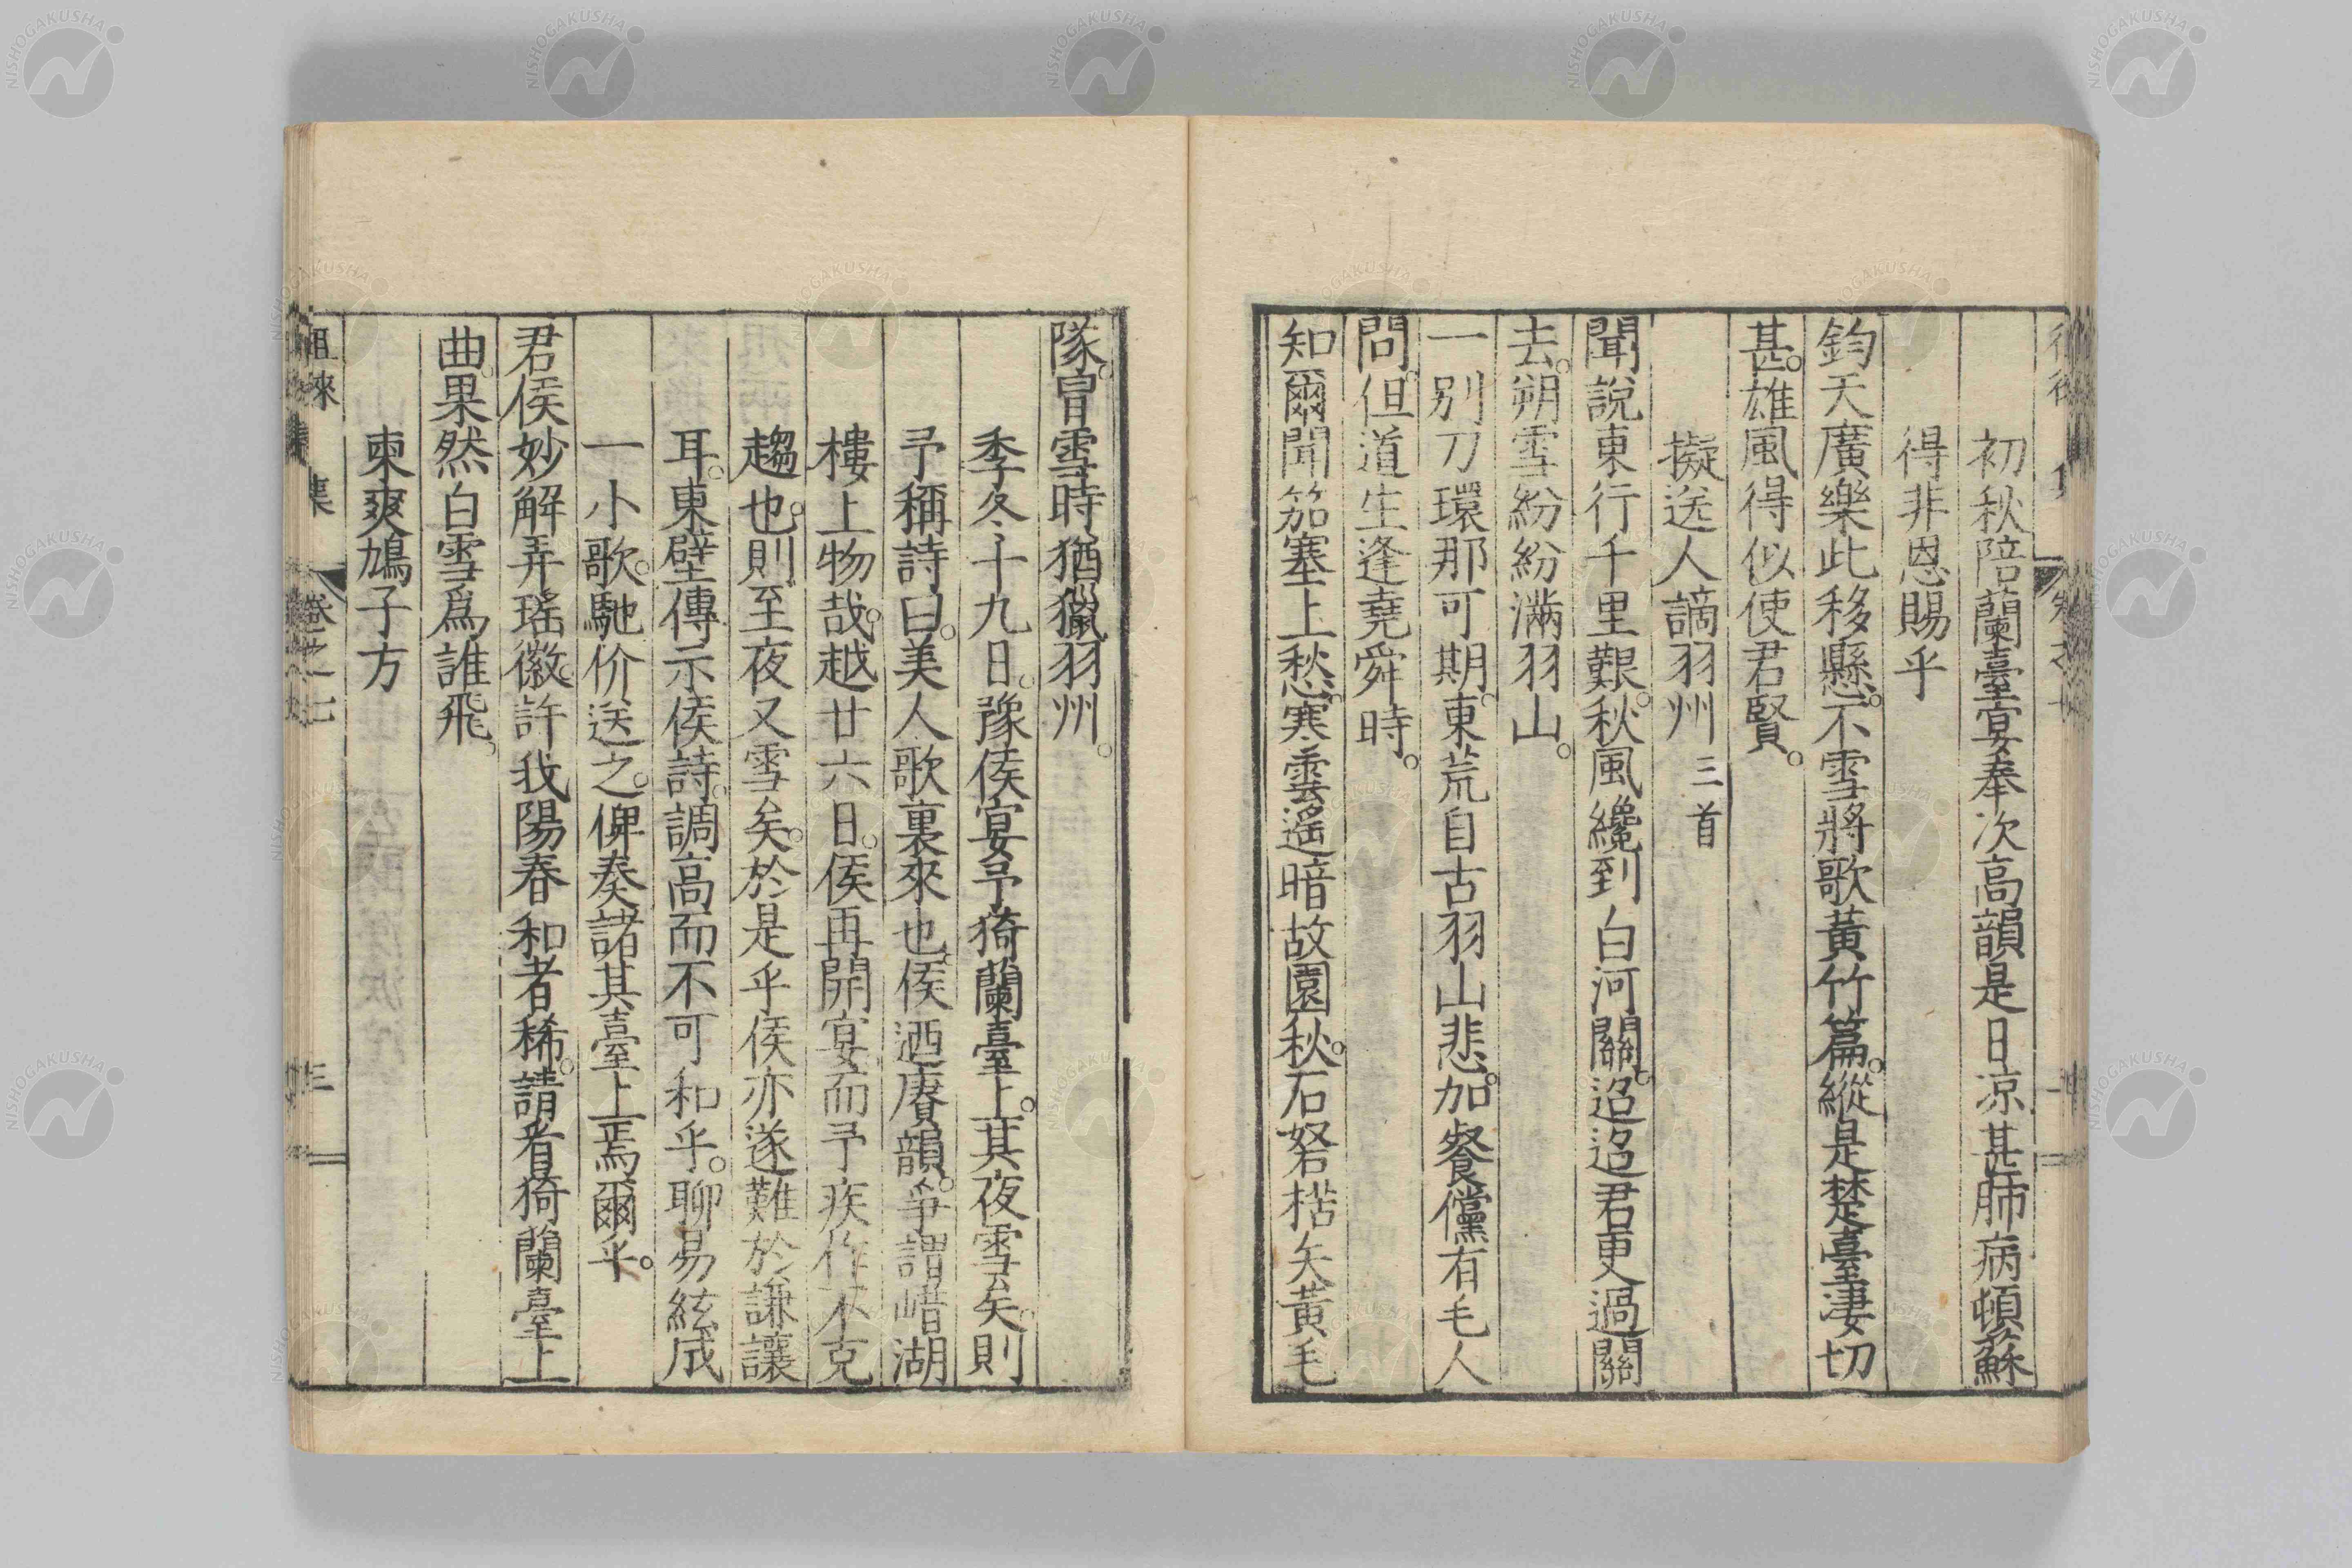 初秋陪蘭臺宴奉次高韻是日凉甚肺病頓蘇
得非恩賜乎
鈞天廣樂此移懸。不雪將歌黃竹篇。縱是楚臺淒切
甚。雄風得似使君賢。
擬送人謫羽州 三首
聞說東行千里艱。秋風纔到白河關。迢迢君更過關
去。朔雪紛紛滿羽山。
一別刀環那可期。東荒自古羽山悲。加餐儻有毛人
問。但道生逢堯舜時。
知爾聞笳塞上愁。寒雲遙暗故園秋。石砮楛矢黃毛
隊。冒雪時猶獵羽州。
季冬十九日。豫侯宴予猗蘭臺上。其夜雪矣。則
予稱詩曰。美人歌裏來也。侯迺賡韻。爭謂嵴湖
樓上物哉。越廿六日。侯再開宴而予疾作不克
趨也。則至夜又雪矣。於是乎侯亦遂難於謙讓
耳。東壁傳示侯詩。調高而不可和乎。聊易絃成
一小歌。馳价送之。俾奏諸其臺上焉爾乎。
君侯妙解弄瑤徽。許我陽春和者稀。請看猗蘭臺上
曲。果然白雪爲誰飛。
柬爽鳩子方
徂徠集 卷之七 三